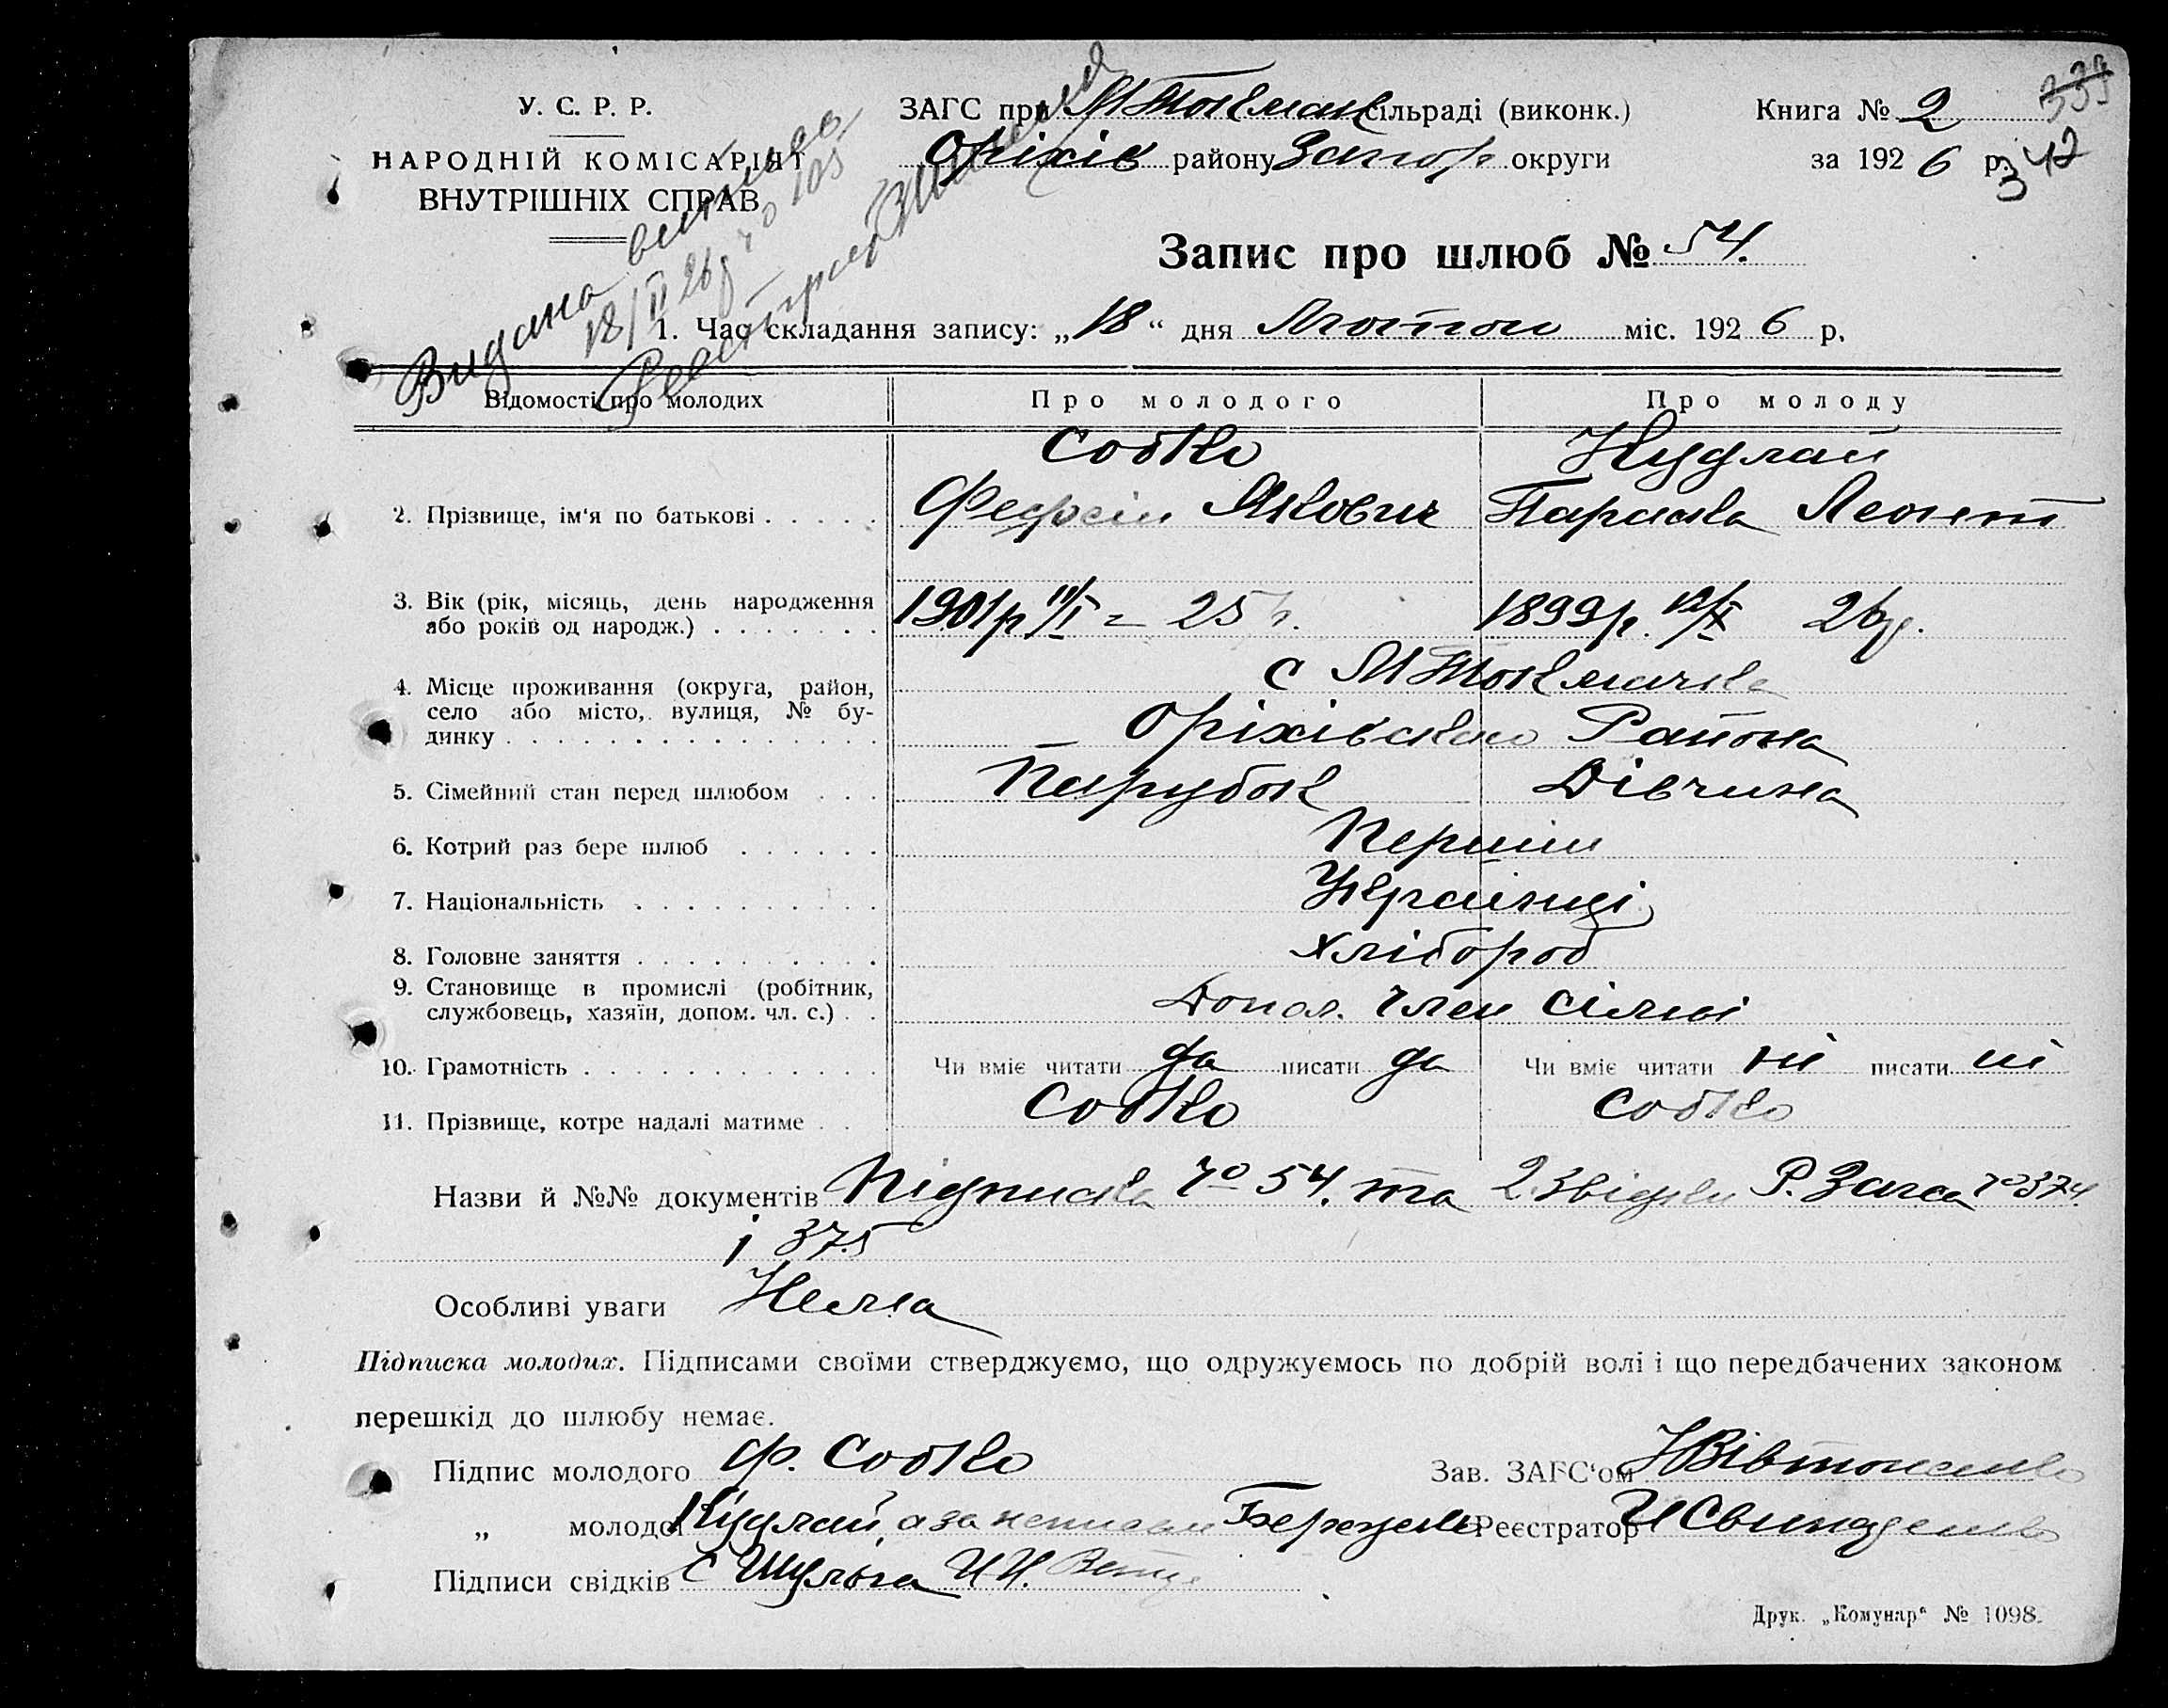 У. С. Р. Р.
НАРОДНІЙ КОМІСАРІЯТ
ВНУТРІШНІХ СПРАВ
ЗАГС при М Токмак сільраді (виконк.)
Оріхів району Запор округи
Книга № 2
за 1926 р.
339
342
Видана
18/II 26 р № 105
Запис про шлюб № 54.
1. Час складання запису: „18“ дня Лютого міс. 1926 р.
Відомості про молодих Про молодого Про молоду
Собко Кудлай
2. Прізвище, ім‘я по батькові Якович Параска Леонт
3. Вік (рік, місяць, день народження
або років од народж.) 1901р 25 р. 1899р. 26р.
4. Місце проживання (округа, район,
село або місто, вулиця, № бу-
динку
с М Токмачка
Оріхівського Района
5. Сімейний стан перед шлюбом Парубок Дівчина
6. Котрий раз бере шлюб Перший
7. Національність Українці
8. Головне заняття хлібороб
9. Становище в промислі (робітник,
службовець, хазяїн, допом. чл. с.) член сімьї
10. Грамотність Чи вміє читати да писати да Чи вміє читати ні писати ні
11. Прізвище, котре надалі матиме Собко Собко
Назви й №№ документів Підписка № 54. та 2 Звідки Р. Загса № 374
і 375
Особливі уваги Нема
Підписка молодих. Підписами своїми стверджуємо, що одружуємось по добрій волі і що передбачених законом
перешкід до шлюбу немає.
Підпис молодого Ф. Собко Зав. ЗАГС‘ом
„ молодої Кудлай, а за неписьм Реєстратор
Підписи свідків С Шульга И И.
Друк. „Комунар“ № 1098.